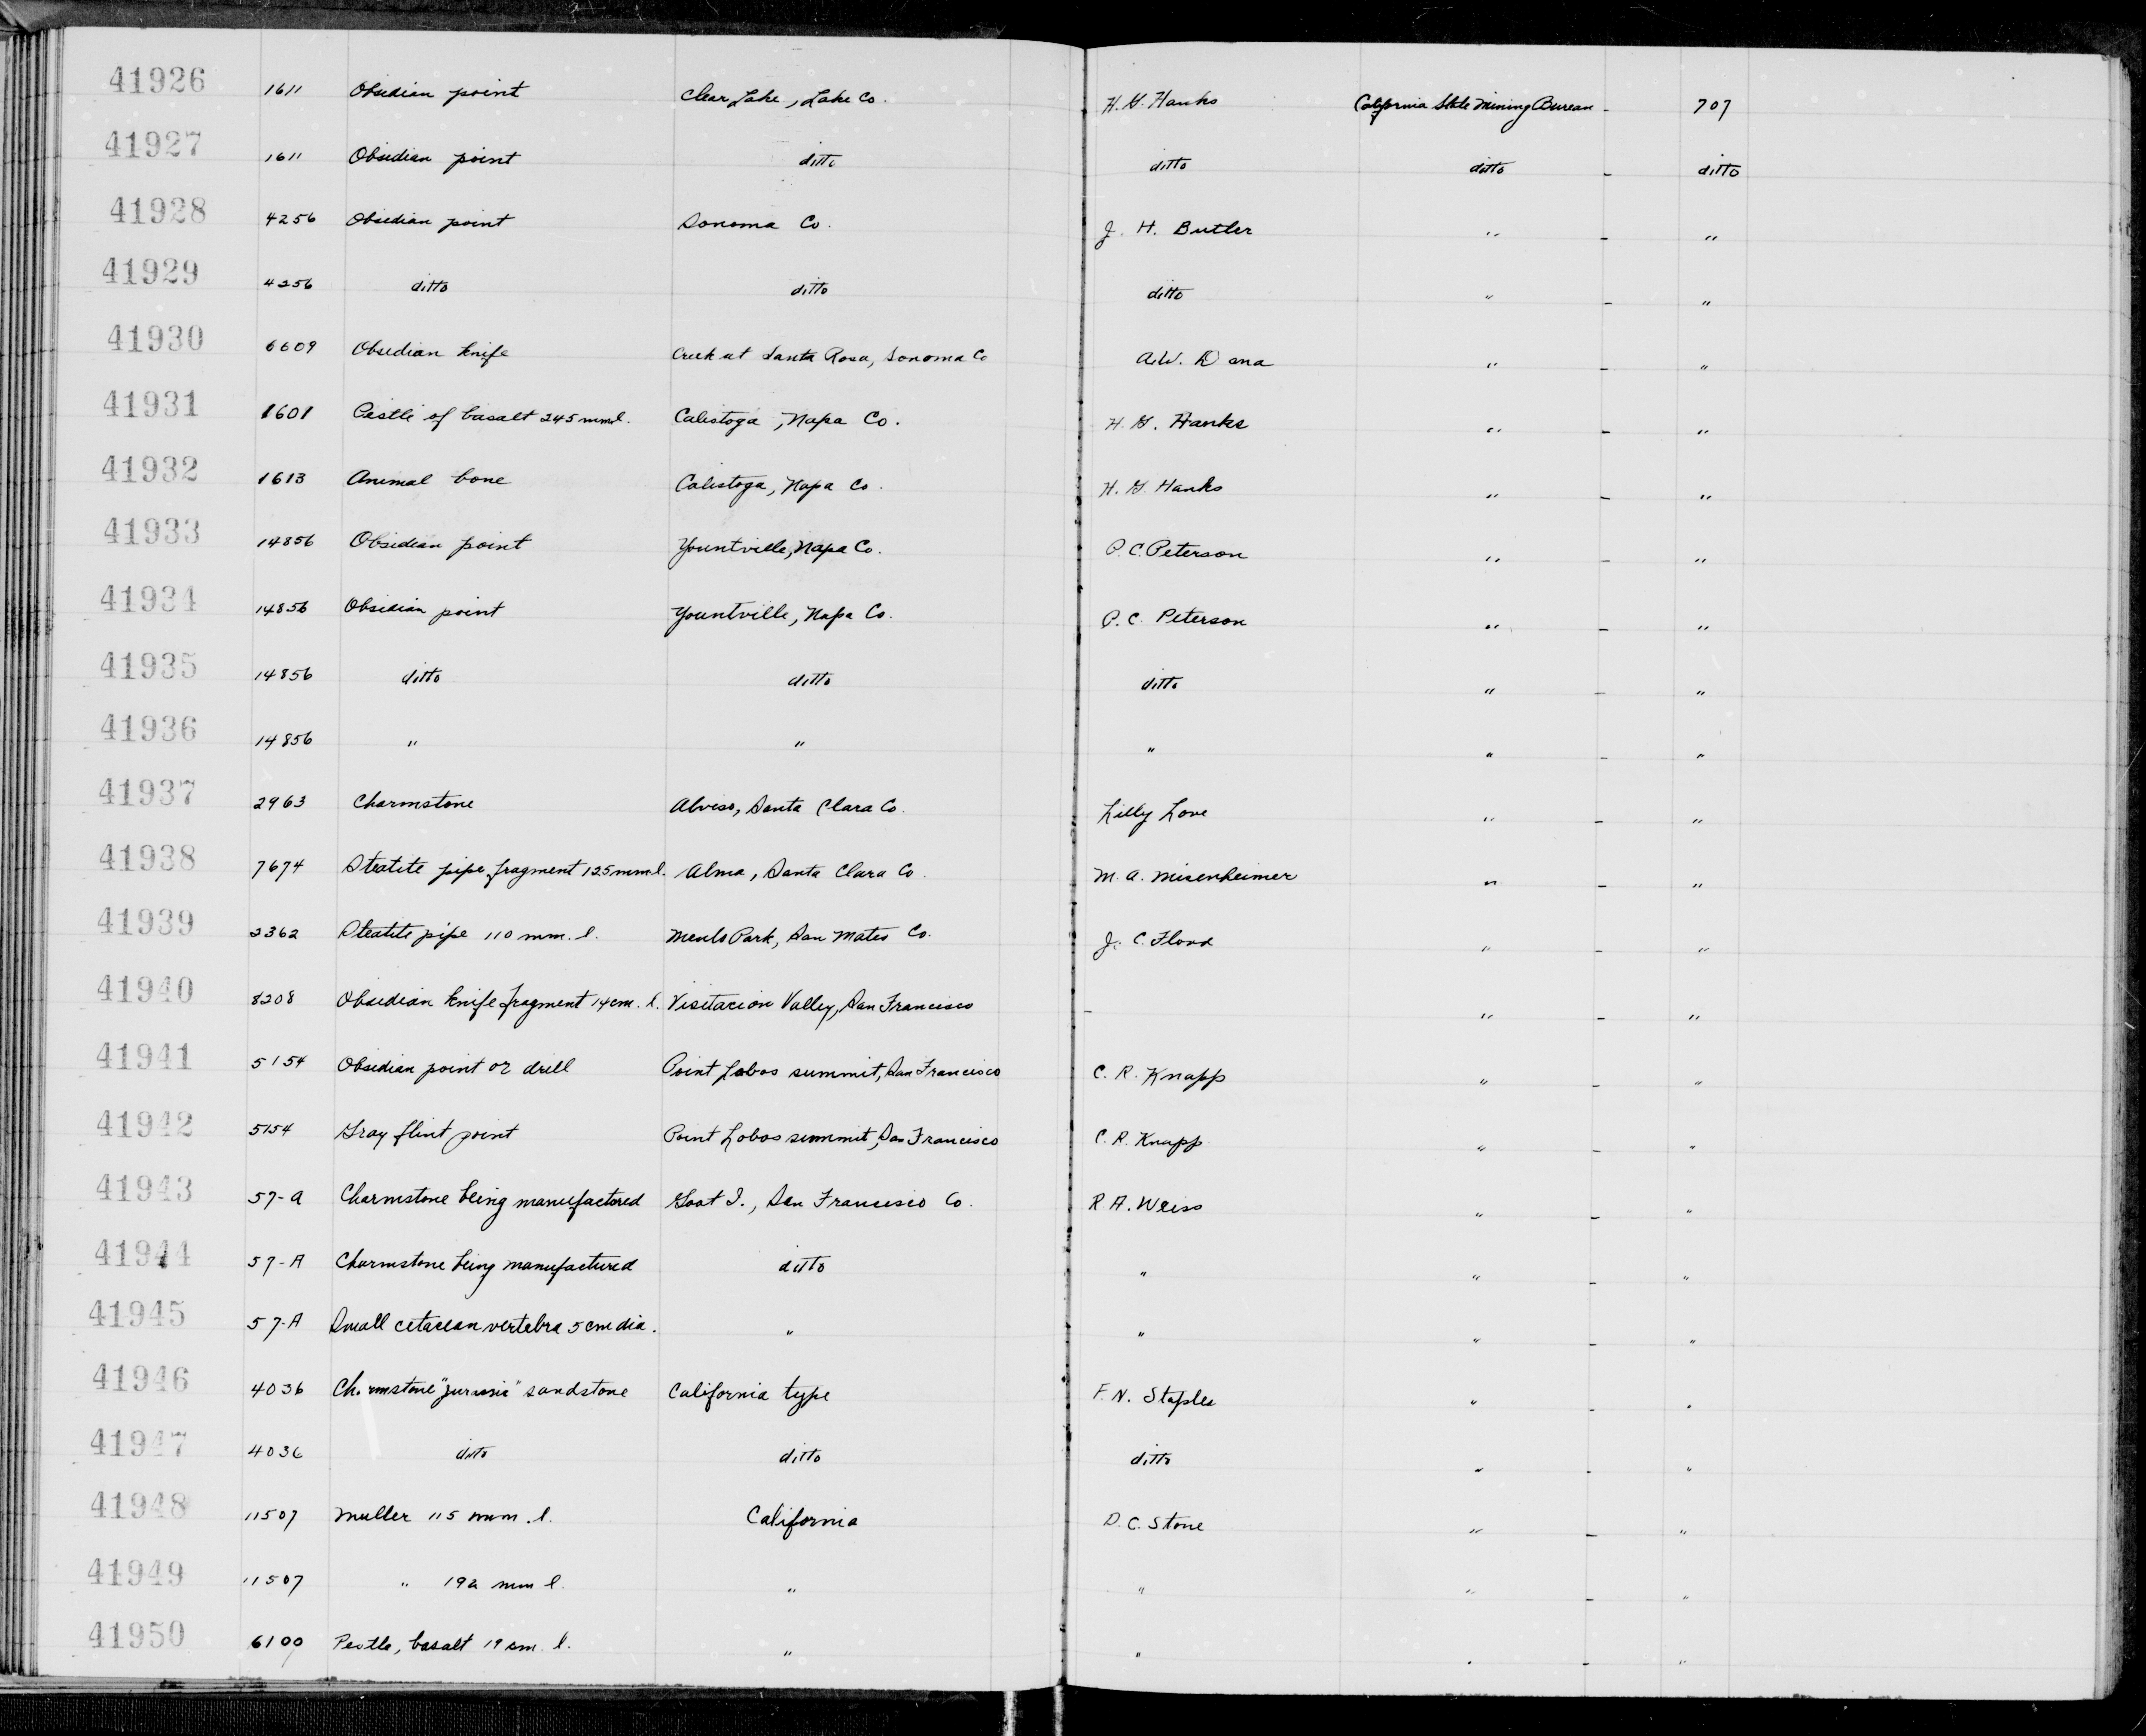 41926 1611 Obsidian point Clear Lake, Lake Co. H. G. Hanks California State Mining Bureau - 707
41927 1611 Obsidian point ditto ditto ditto - ditto
41928 4256 Obsidian point Sonoma Co. J. H. Butler " - "
41929 4256 ditto ditto ditto " - "
41930 6609 Obsidian knife Creek at Santa Rosa, Sonoma Co A.W. Dana " - "
41931 1601 Pestle of basalt 245 mm l. Calistoga, Napa Co. H. G. Hanks " - "
41932 1613 Animal bone Calistoga, Napa Co. H. G. Hanks " - "
41933 14856 Obsidian point Yountville, Napa Co. P. C. Peterson " - "
41934 14856 Obsidian point Yountville, Napa Co. P. C. Peterson " - "
41935 14856 ditto ditto ditto " - "
41936 14856 " " " " - "
41937 2963 Charmstone Alviso, Santa Clara Co. Lilly Love " - "
41938 7674 Steatite pipe fragment 125 mm l. Alma, Santa Clara Co. M. A. Misenheimer " - "
41939 2362 Steatite pipe 110 mm. l. Menlo Park, San Mateo Co. J. C. Flood " - "
41940 8208 Obsidian knife fragment 14 cm. l. Visitacion Valley, San Francisco - " - "
41941 5154 Obsidian point or drill Point Lobos summit, San Francisco C. R. Knapp " - "
41942 5154 Gray flint point Point Lobos summit, San Francisco C. R. Knapp " - "
41943 57-A Charmstone being manufactored Goat I., San Francisco Co. R. A. Weiss " - "
41944 57-A Charmstone being manufactured ditto " " - "
41945 57-A Small cetacean vertebra 5 cm dia. " " " - "
41946 4036 Charmstone "jurassic" sandstone California type F. N. Staples " - "
41947 4036 ditto ditto ditto " - "
41948 11507 Muller 115 mm. l. California D. C. Stone " - "
41949 11507 " 192 mm l. " " " - "
41950 6100 Pestle, basalt 19 cm. l. " " " - "